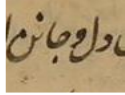 دل و جانم